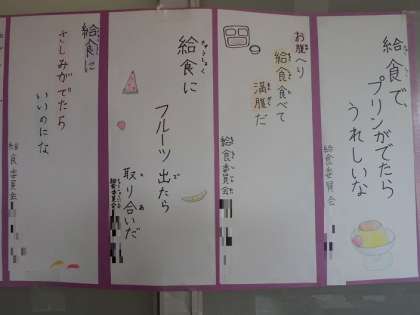 給食で、
プリンがでたら
うれしいな
給食委員会
お腹へり
給食食べて
満腹だ
給食委員会
給食に
フルーツ出たら
取り合いだ
給食委員会
給食に
さしみがでたら
いいのにな
給食委員会